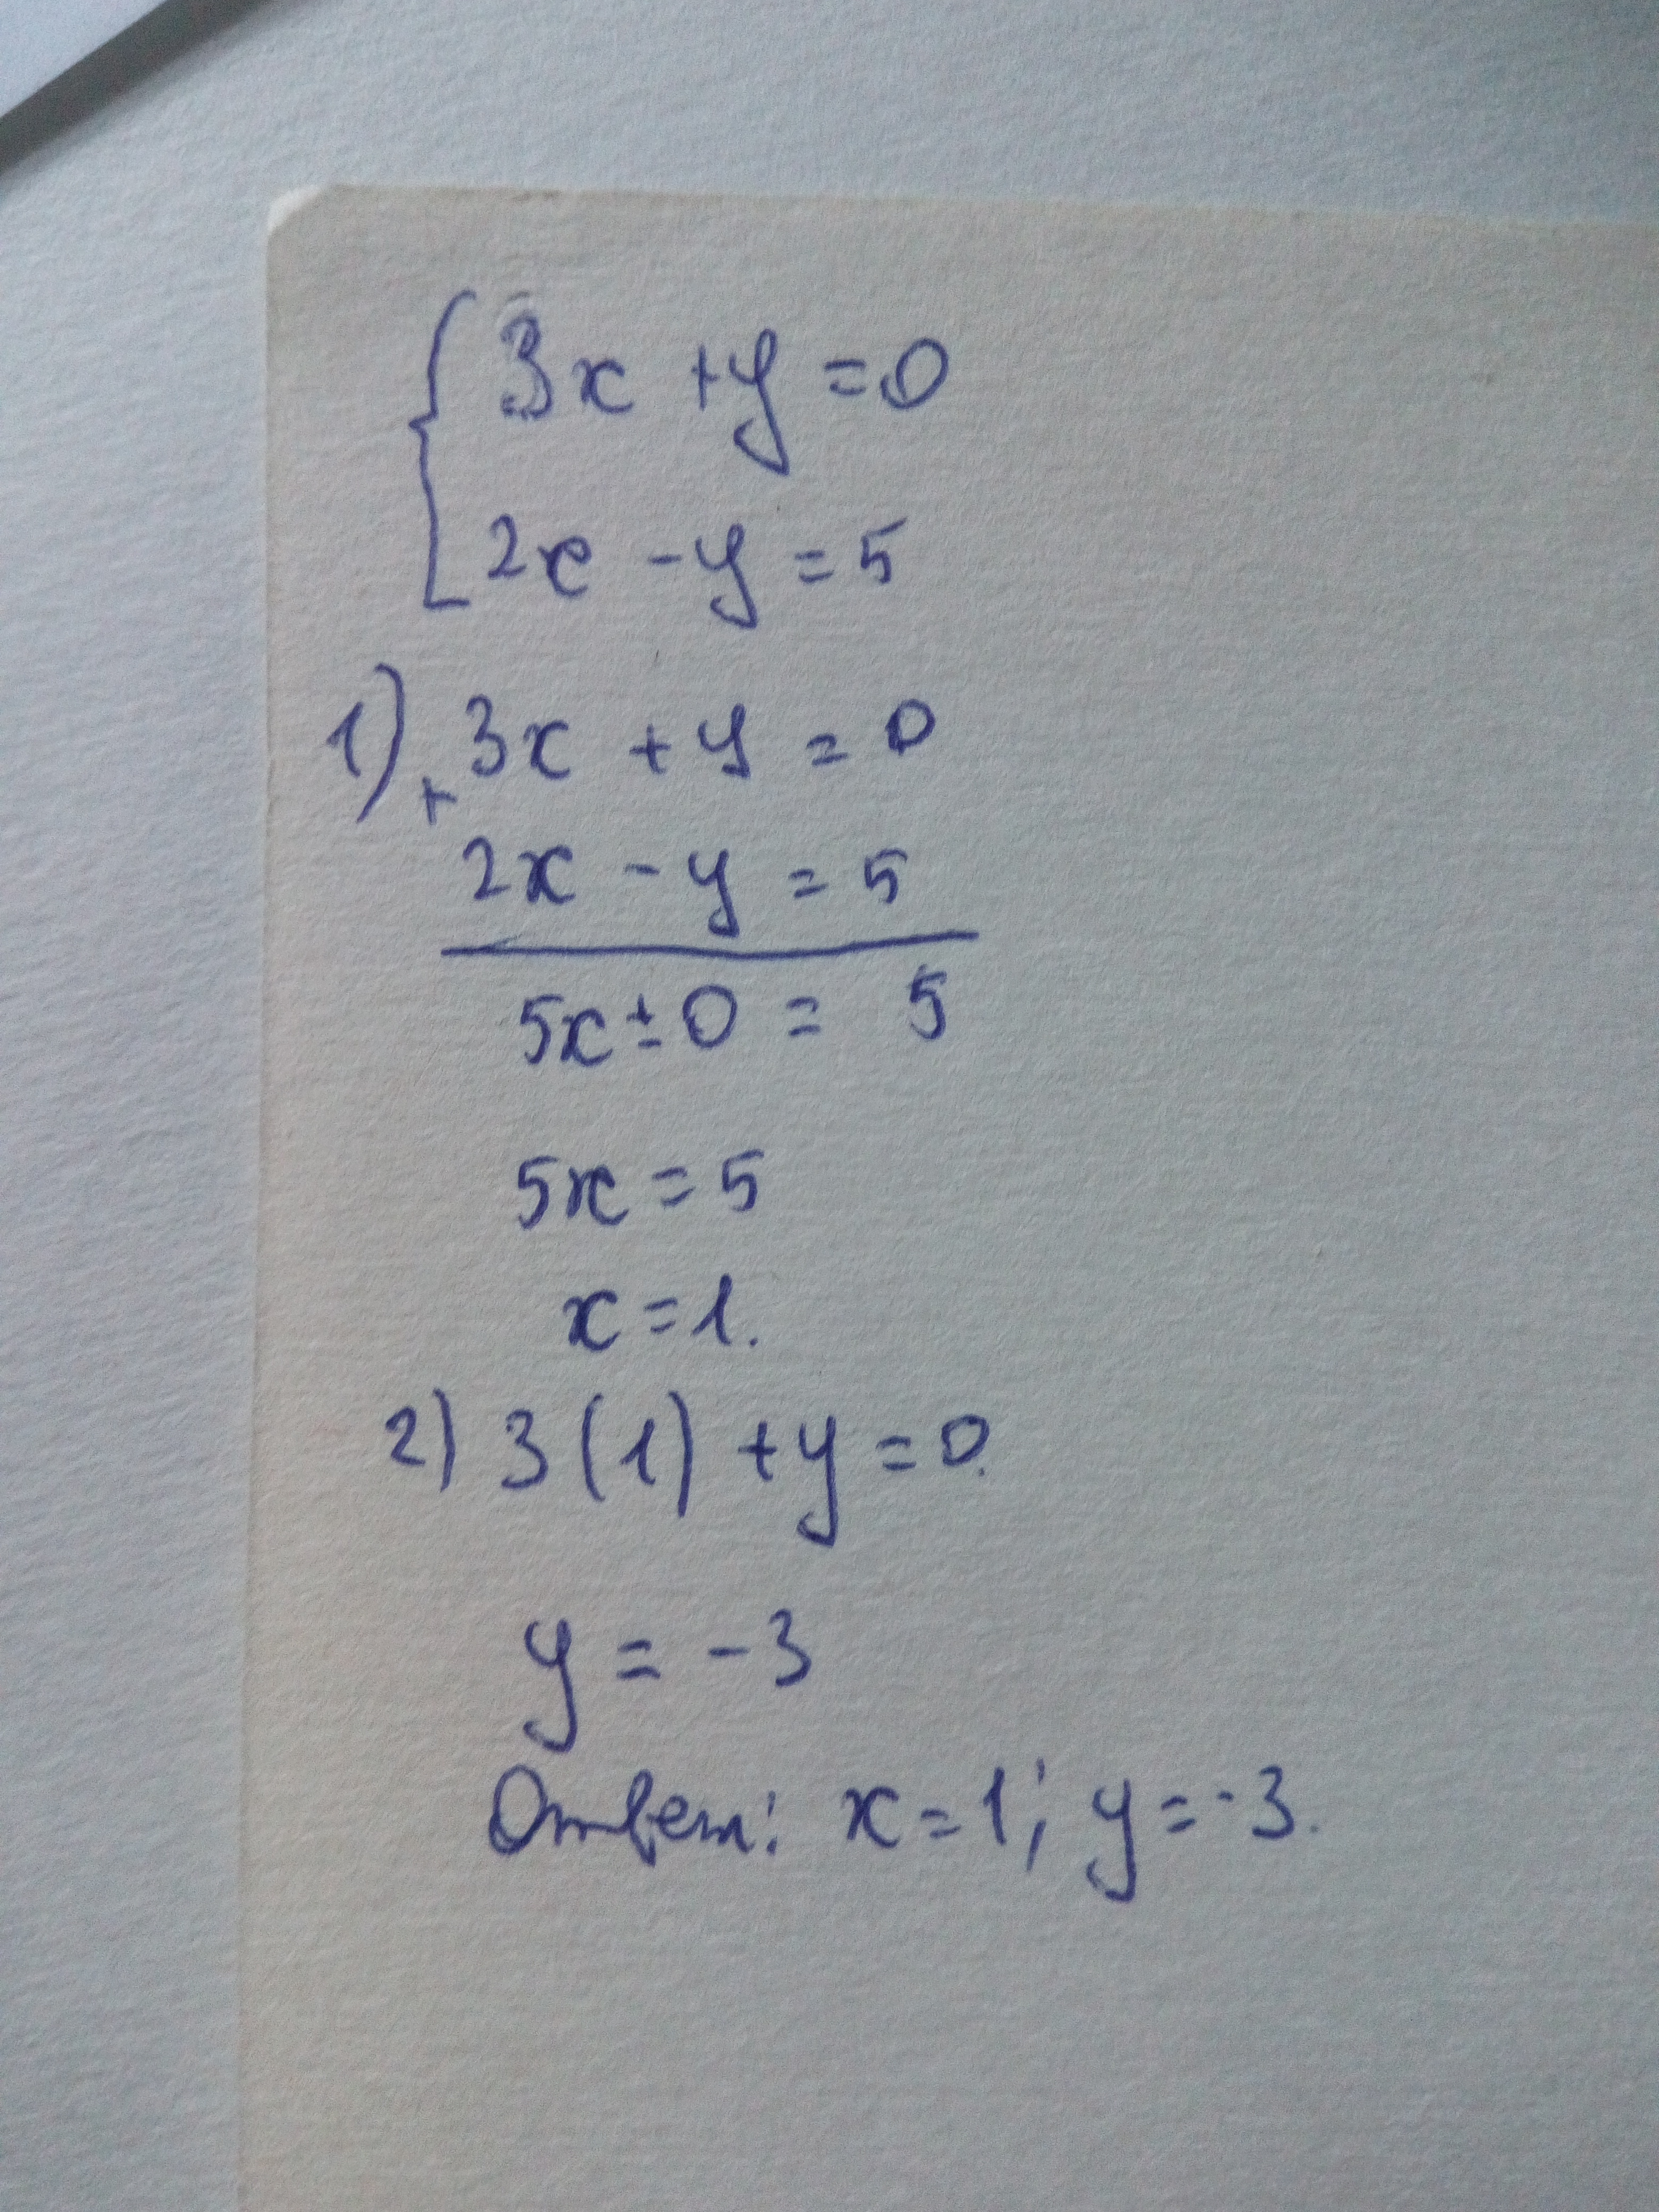 { 3x + y = 0
2x - y = 5
1) + 3x + y = 0
2x - y = 5
5x ± 0 = 5
5x = 5
x = 1.
2) 3(1) + y = 0.
y = -3
Ответ: x = 1; y = -3.